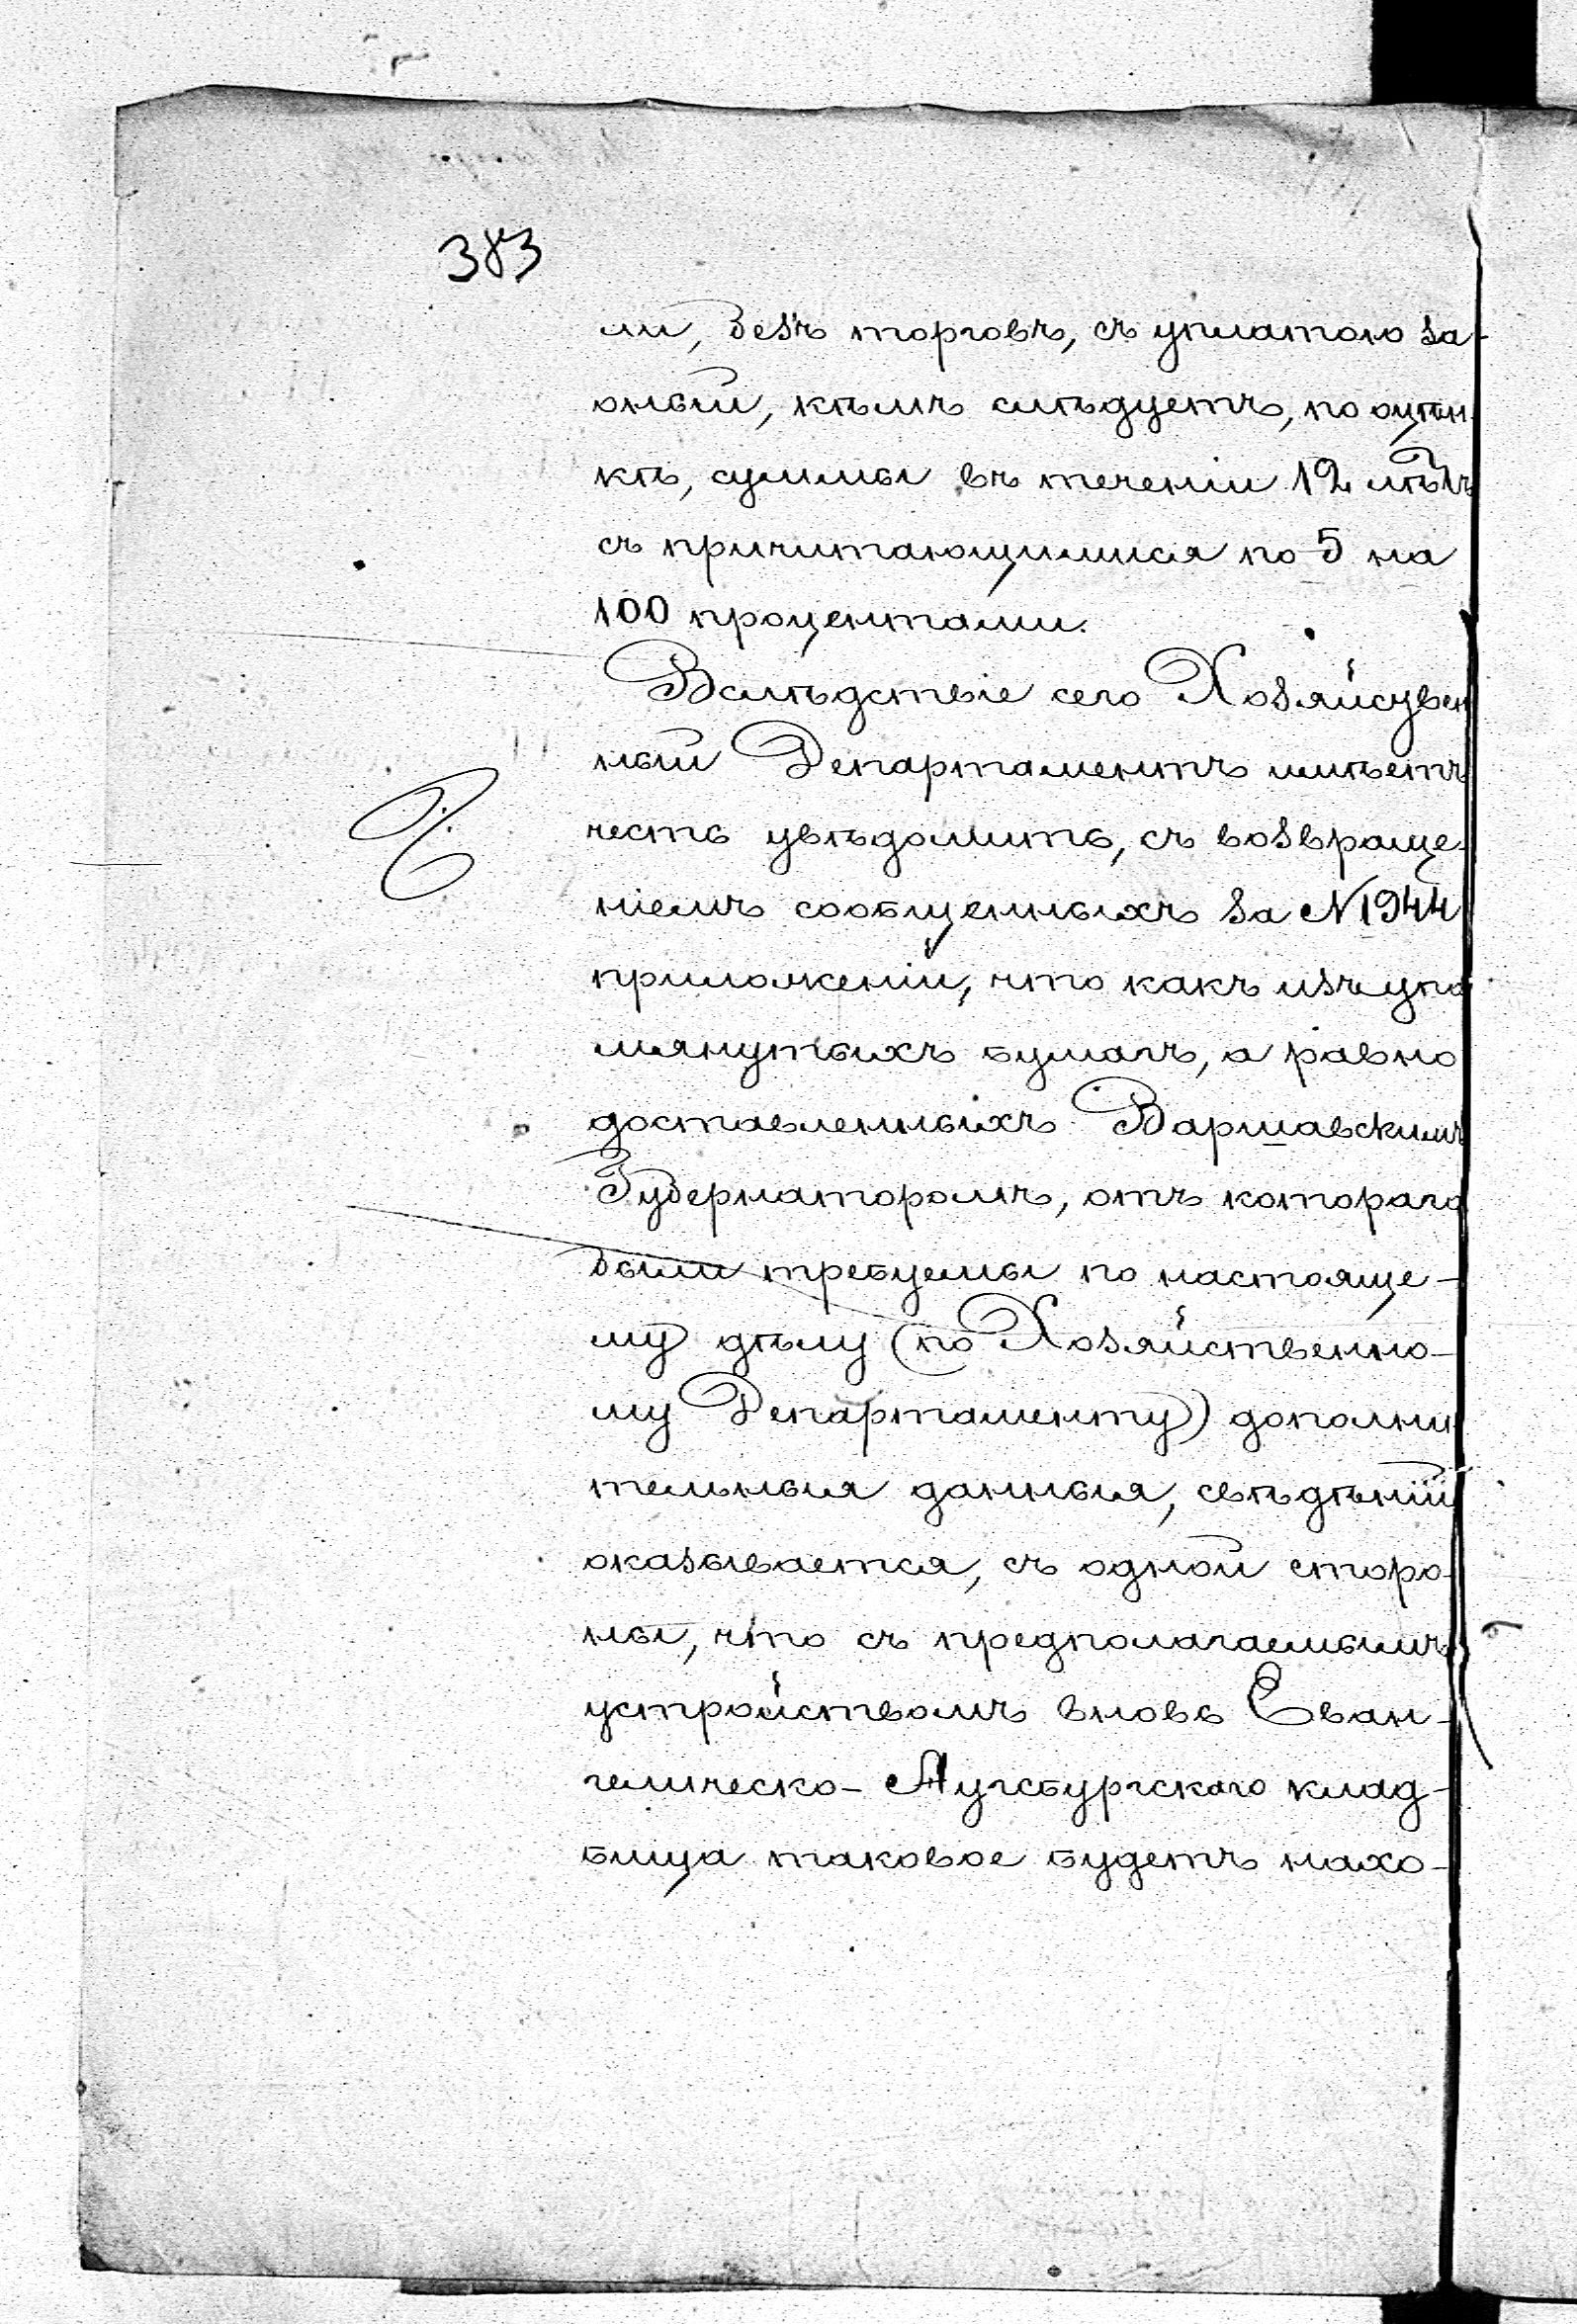 383
ли, безъ торговъ, съ уплатою за-
оный, кѣмъ слѣдуетъ, по оцѣн-
кѣ, суммы въ теченіи 12 мѣ⁠съ
съ причитающимися по 5 на
100 процентами.
Вслѣдствіе сего Хозяйствен
ный Департаментъ имѣетъ
честь увѣдомить, съ возвраще-
ніемъ сообщенныхъ за № 1944
приложеній, что какъ изъ упо
мянутыхъ бумагъ, а равно
доставленныхъ Варшавскимъ
Губернаторомъ, отъ котораго
были требуемы по настояще-
му дѣлу (по Хозяйственно-
му Департаменту) дополни
тельныя данныя, свѣдѣній
оказывается, съ одной сторо-
ны, что съ предполагаемымъ
устройствомъ вновь Еван-
гелическо-Аугсбургскаго клад-
бища таковое будетъ нахо-